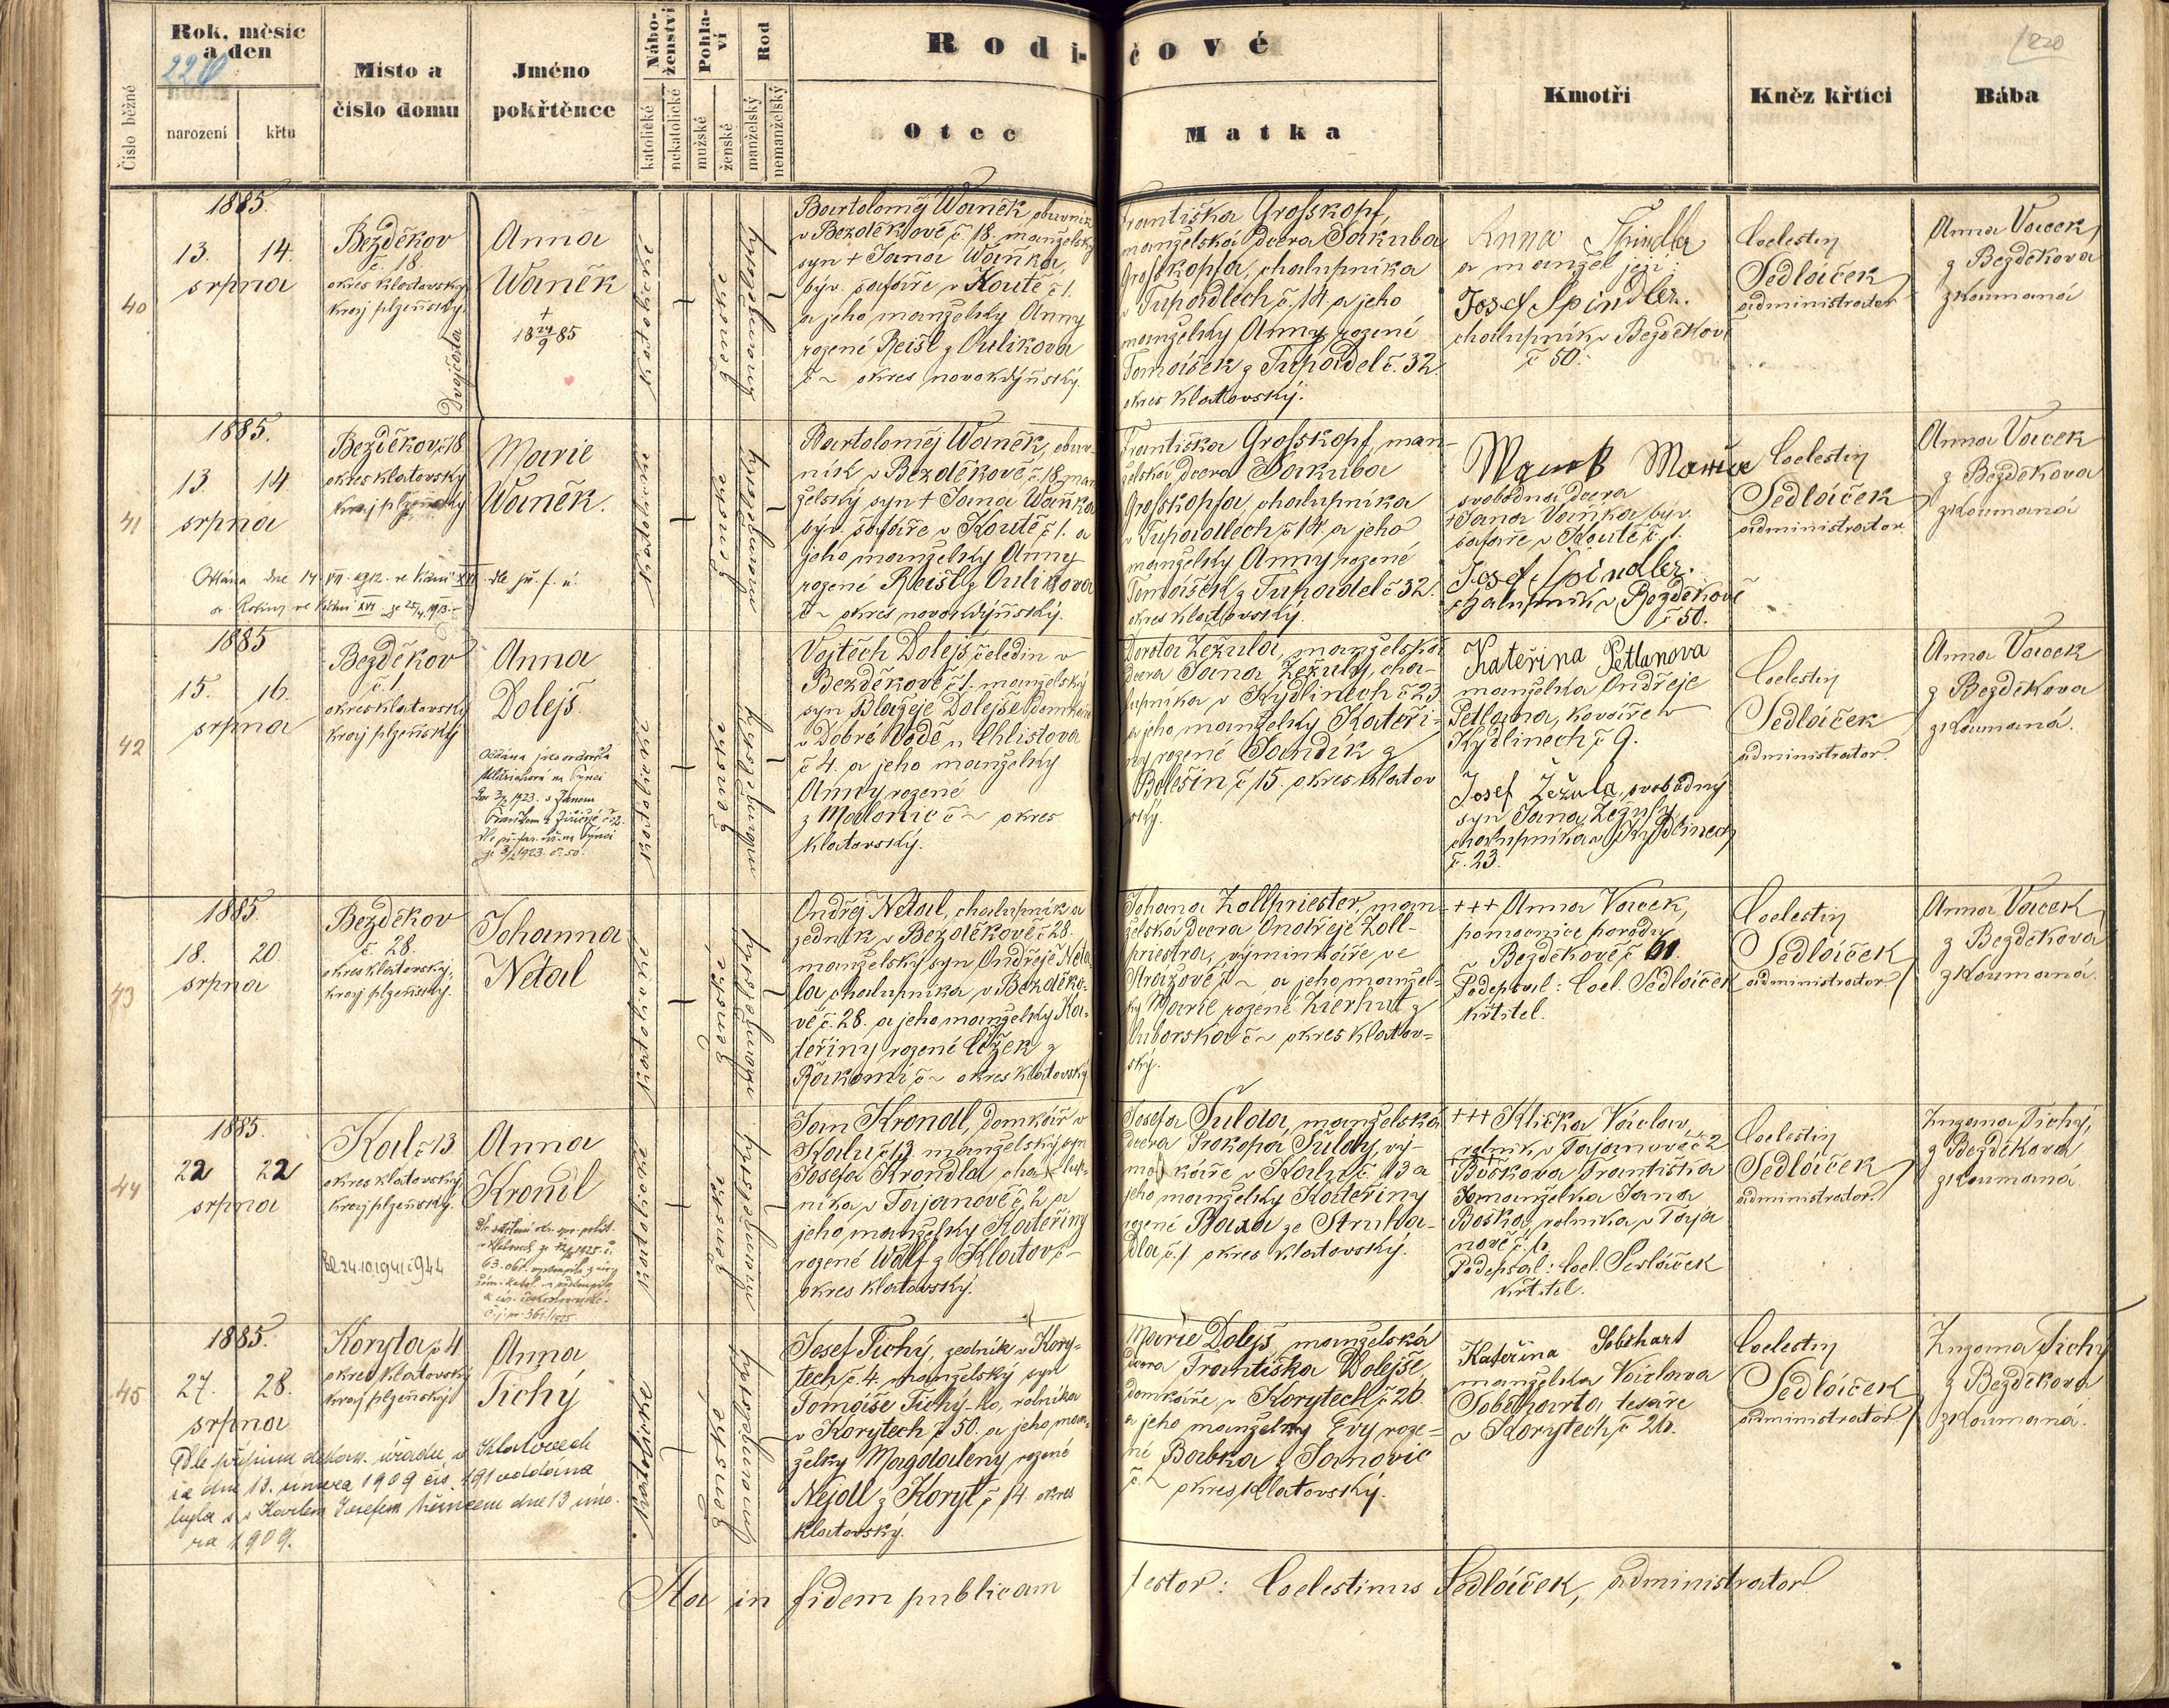 Číslo běžné
Rok, měsíc
a den
narození
křtu
Místo a
číslo domu
Jméno
pokřtěnce
Nábo-
ženství
katolické
nekatolické
Pohla-
ví
mužské
ženské
Rod
manželský
nemanželský
Rodi-
čové
Otec
Matka
Kmotři
Kněz křtící
Bába
220
40
1885.
13. 14.
srpna
Bezděkov
č. 18.
okres klatovský
kraj plzeňský.
Dvojčata
Anna
Waněk
+
18 9 85
katolické
ženské
manželský
Bartoloměj Waněk, obuvník
v Bezděkově č. 18. manželský
syn + Jana Waňka,
býv. šafáře v Koutě č 1.
a jeho manželky Anny
rozené Reisl z Oulikova
č ~ okres novokdyňský.
Františka Grosskopf,
manželská dcera Jakuba
Grosskopfa, chalupníka
v Tupadlech č. 14 a jeho
manželky Anny rozené
Tomášek z Tupadel č. 32.
okres klatovský.
Anna Spindler
a manžel její
Josef Spindler.
chalupník v Bezděkově
č 50.
Coelestin
Sedláček
administrator
Anna Vacek,
z Bezděkova
zkoumaná
41
1885.
13. 14.
srpna
Bezděkov č 18
okres klatovský
kraj plzeňský
Marie
Waněk.
katolické
ženské
Bartoloměj Waněk, obuv-
ník v Bezděkově č. 18. man-
želský syn + Jana Waňka
býv. šafáře v Koutě č 1. a
jeho manželky Anny
rozené Reisl z Oulikova
č ~ okres novokdyňský.
Františka Grosskopf, man-
želská dcera Jakuba
Grosskopfa, chalupníka
v Tupadlech č 14. a jeho
manželky Anny rozené
Tomášek z Tupadel č 32.
okres klatovský.
svobodná dcera
+ Jana Vaňka býv.
šafáře v Koutě č. 1.
Josef Spindler.
chalupník v Bezděkově
č 50.
Coelestin
Sedláček
administrator
Anna Vacek
z Bezděkova
zkoumaná
42
1885
15. 16.
srpna
Bezděkov
č. 1
okres klatovský
kraj plzeňský
Anna
Dolejš.
katolické
ženské
Vojtěch Dolejš čeledín v
Bezděkově č 1. manželský
syn Blažeje Dolejše domkáře
v Dobré Vodě u Chlistova
č 4. a jeho manželky
Anny rozené
z Malonic č ~ okres
klatovský.
Dorota Žežula, manželská
dcera Jana Žežuly, cha-
lupníka v Kydlinech č 23
a jeho manželky Kateři-
ny rozené Jandík z
Bolešin č 15. okres klatov
ský.
Kateřina Petlanova
manželka Ondřeje
Petlana, kováře v
Kydlinech č 9.
Josef Žežula, svobodný
syn Jana Žežuly
chalupníka v Kydlinech
č. 23.
Coelestin
Sedláček
administrator.
Anna Vacek
z Bezděkova
zkoumaná.
43
1885.
18. 20.
srpna
Bezděkov
č. 28.
okres klatovský,
kraj plzeňský.
Johanna
Netal
katolické
ženské
Ondřej Netal, chalupník a
zedník v Bezděkově č 28.
manželský syn Ondřeje Neta
la chalupníka v Bezděko-
vě č. 28. a jeho manželky Ka-
teřiny rozené Čížek z
Rakomi č ~ okres klatovský
Johana Zollpriester, man-
želská dcera Ondřeje Zoll-
priestra, výminkáře, ve
Strážově č ~ a jeho manžel-
ky Marie rozené Zierhut z
Viborska č ~ okres klatov-
ský.
+++ Anna Vacek,
pomocnice porodu
v Bezděkově č 61.
Podepsal: Coel. Sedláček
křtitel.
Coelestin
Sedláček
administrator
Anna Vacek
z Bezděkova
zkoumaná.
44
1885.
22 22
srpna
Kal č 13
okres klatovský
kraj plzeňský.
Anna
Krondl
katolické
ženské
Jan Krondl, domkář v
Kalu č 13. manželský syn
Josefa Krondla chalup-
níka v Tajanově č. 2 a
jeho manželky Kateřiny
rozené Wolf z Klatov č -
okres klatovský.
Josefa Šulda, manželská
dcera Prokopa Šuldy, vý-
měnkáře v Kalu č. 13 a
jeho manželky Kateřiny
rozené Baxa ze Struha-
dla č. 1. okres klatovský.
+++ Klička Václav,
rolník v Tajanově č 2
Bošková Františka
manželka Jana
Boška, rolníka v Taja
nově č. 6.
Podepsal: Coel. Sedláček
křtitel.
Coelestin
Sedláček
administrator
Zuzana Tichý,
z Bezděkova
zkoumaná.
45
1885.
27. 28.
srpna
Koryta č 4
okres klatovský
kraj plzeňský
Anna
Tichý
katolické
ženské
Dle přípisu děkan. úřadu v Klatovech
ze dne 13. února 1909 čís. 191 oddána
byla s Karlem Josefem Němcem dne 13 úno-
ra 1909.
Josef Tichý, zedník v Kory-
tech č. 4. manželský syn
Tomáše Tichý-ho, rolníka
v Korytech č 50. a jeho man-
želky Magdaleny rozené
Nejdl z Koryt č 14. okres
klatovský.
Marie Dolejš, manželská
dcera Františka Dolejše,
domkáře, v Korytech č 26.
a jeho manželky Evy roze-
né Babka z Janovic
č. ~ okres klatovský.
Kateřina Sebehart
manželka Václava
Sebeharta tesaře
v Korytech č 26.
Coelestin
Sedláček
administrator
Zuzana Tichý
z Bezděkova
zkoumaná.
Ita in fidem publicam testor: Coelestinus Sedláček, administrator